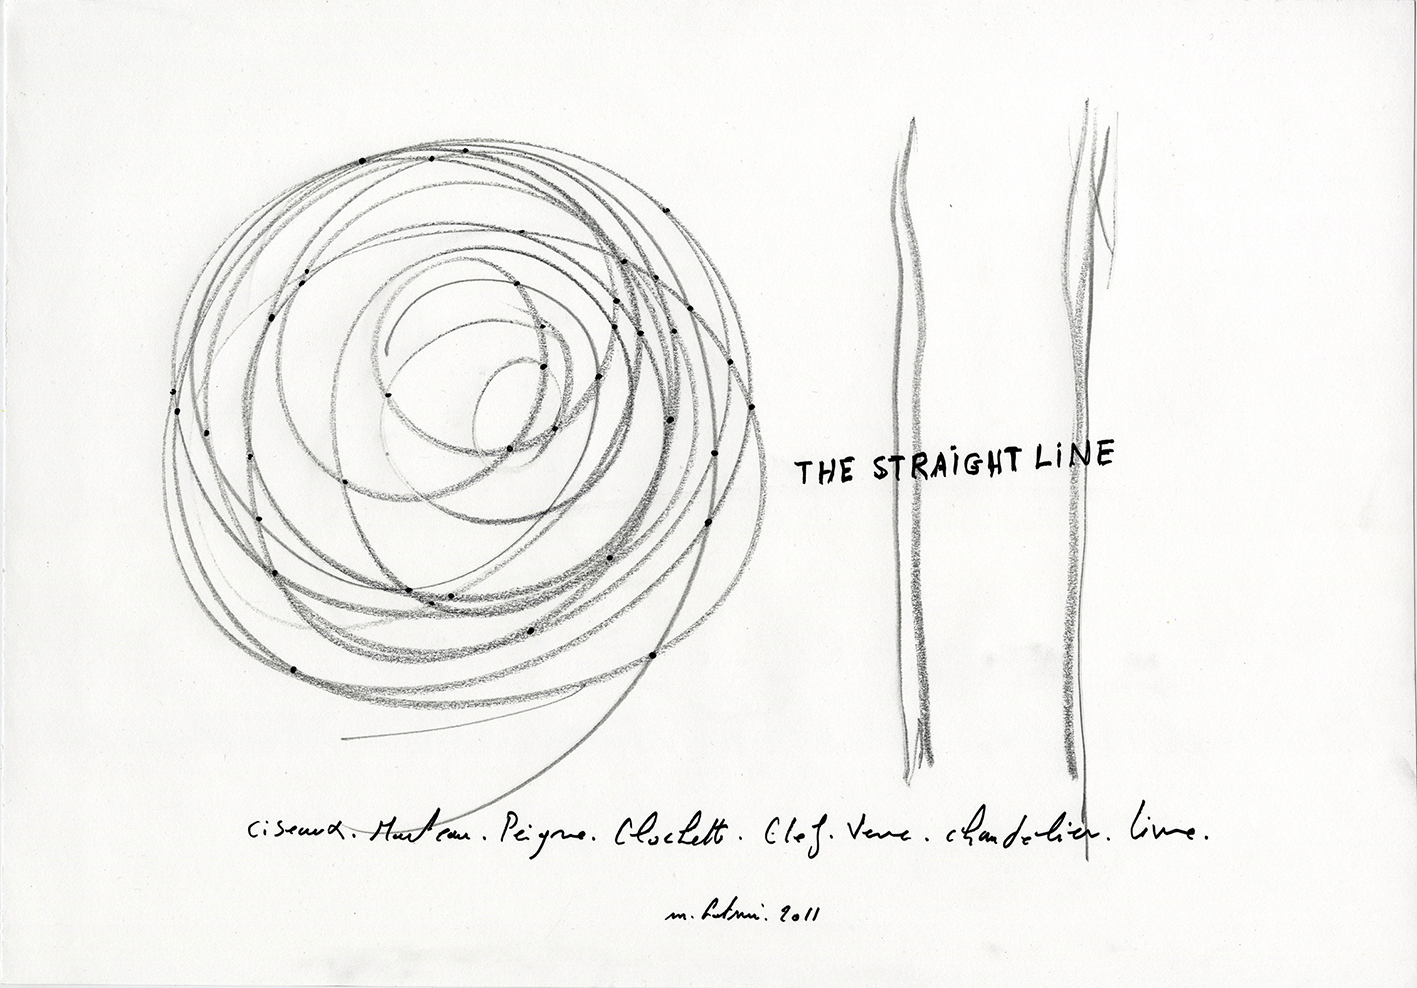 THE STRAIGHT LINE
ciseaux. Marteau. Peigne. Clochette. Clef. Verre. chandelier. livre.
m. fatmi. 2011